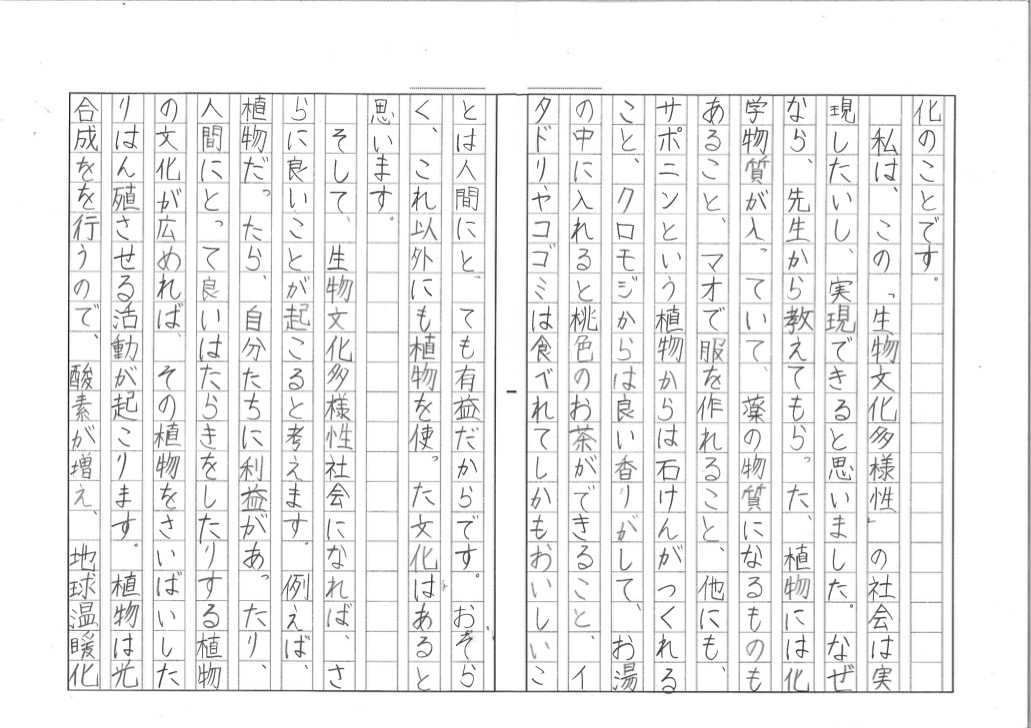 化のことです。
私は、この「生物文化多様性」の社会は実
現したいし、実現できると思いました。なぜ
なら、先生から教えてもらった、植物には化
学物質が入っていて、薬の物質になるものも
あること、マオで服を作れること、他にも、
サポニンという植物からは石けんがつくれる
こと、クロモジからは良い香りがして、お湯
の中に入れると桃色のお茶ができること、イ
タドリやコゴミは食べれてしかもおいしいこ
とは人間にとっても有益だからです。おぞら
く、これ以外にも植物を使った文化はあると
思います。
そして、生物文化多様性社会になれば、さ
らに良いことが起こると考えます。例えば、
植物だったら、自分たちに利益があったり、
人間にとって良いはたらきをしたりする植物
の文化が広めれば、その植物をさいばいした
りはん殖させる活動が起こります。植物は光
合成をを行うので、酸素が増え、地球温暖化